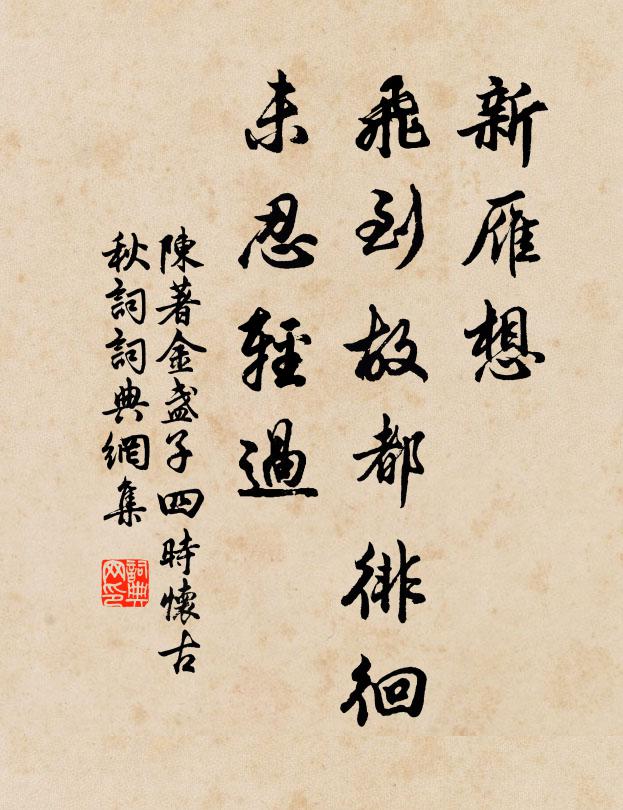 新雁想
飛到故都徘徊
未忍輕過
陳著金盞子四時懷古
秋詞詞典網集
詞典網印